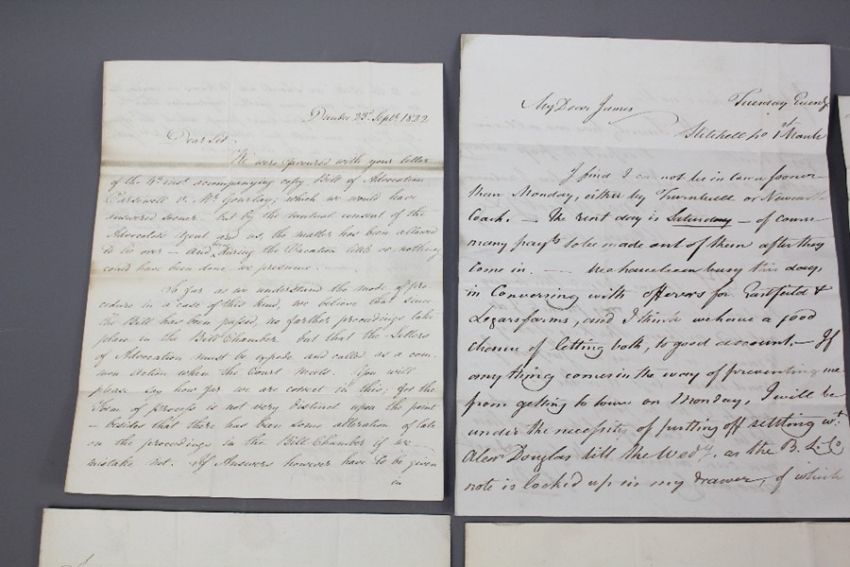 Dundee 23d Septr 1822
Dear Sir
We were favoured with your letter
of the 4th inst accompanying copy Bill of Advocation
Carsewell v. Mrs Gourlay; which we would have
answered sooner but by the mutual consent of the
Advocators Agent and us, the matter has been allowed
to lie over – and during the Vacation little or nothing
could have been done, we presume.
So far as we understand the mode of pro
cedure in a case of this kind, we believe that since
the Bill has been passed, no farther proceedings take
place in the Bill Chamber but that the Letters
of Advocation must be expede and called as a com-
mon Action when the Court meets. You will
please say how far we are correct in this; for the
Form of process is not very distinct upon the point
– besides that there has been some alteration of late
on the proceedings in the Bill Chamber if we
mistake not. If Answers however have to be given
in
My Dear James
Tuesday Eveng
1st March
I find I can not be in town sooner
than Monday, either by Turnbull or Newcastle
Coach. – The rent day is Saturday – of course
many payts to be made out of them after they
come in. – We have been busy this day,
in Conversing with offerers for Eastfield &
farms, and I think we have a good
chance of letting both, to good account – If
any thing comes in the way of preventing me
from getting to town on Monday, I will be
under the necessity of putting off settling wt
Alexr Douglas till the Wedy, as the B. L. Co
note is locked up in my drawer, of which